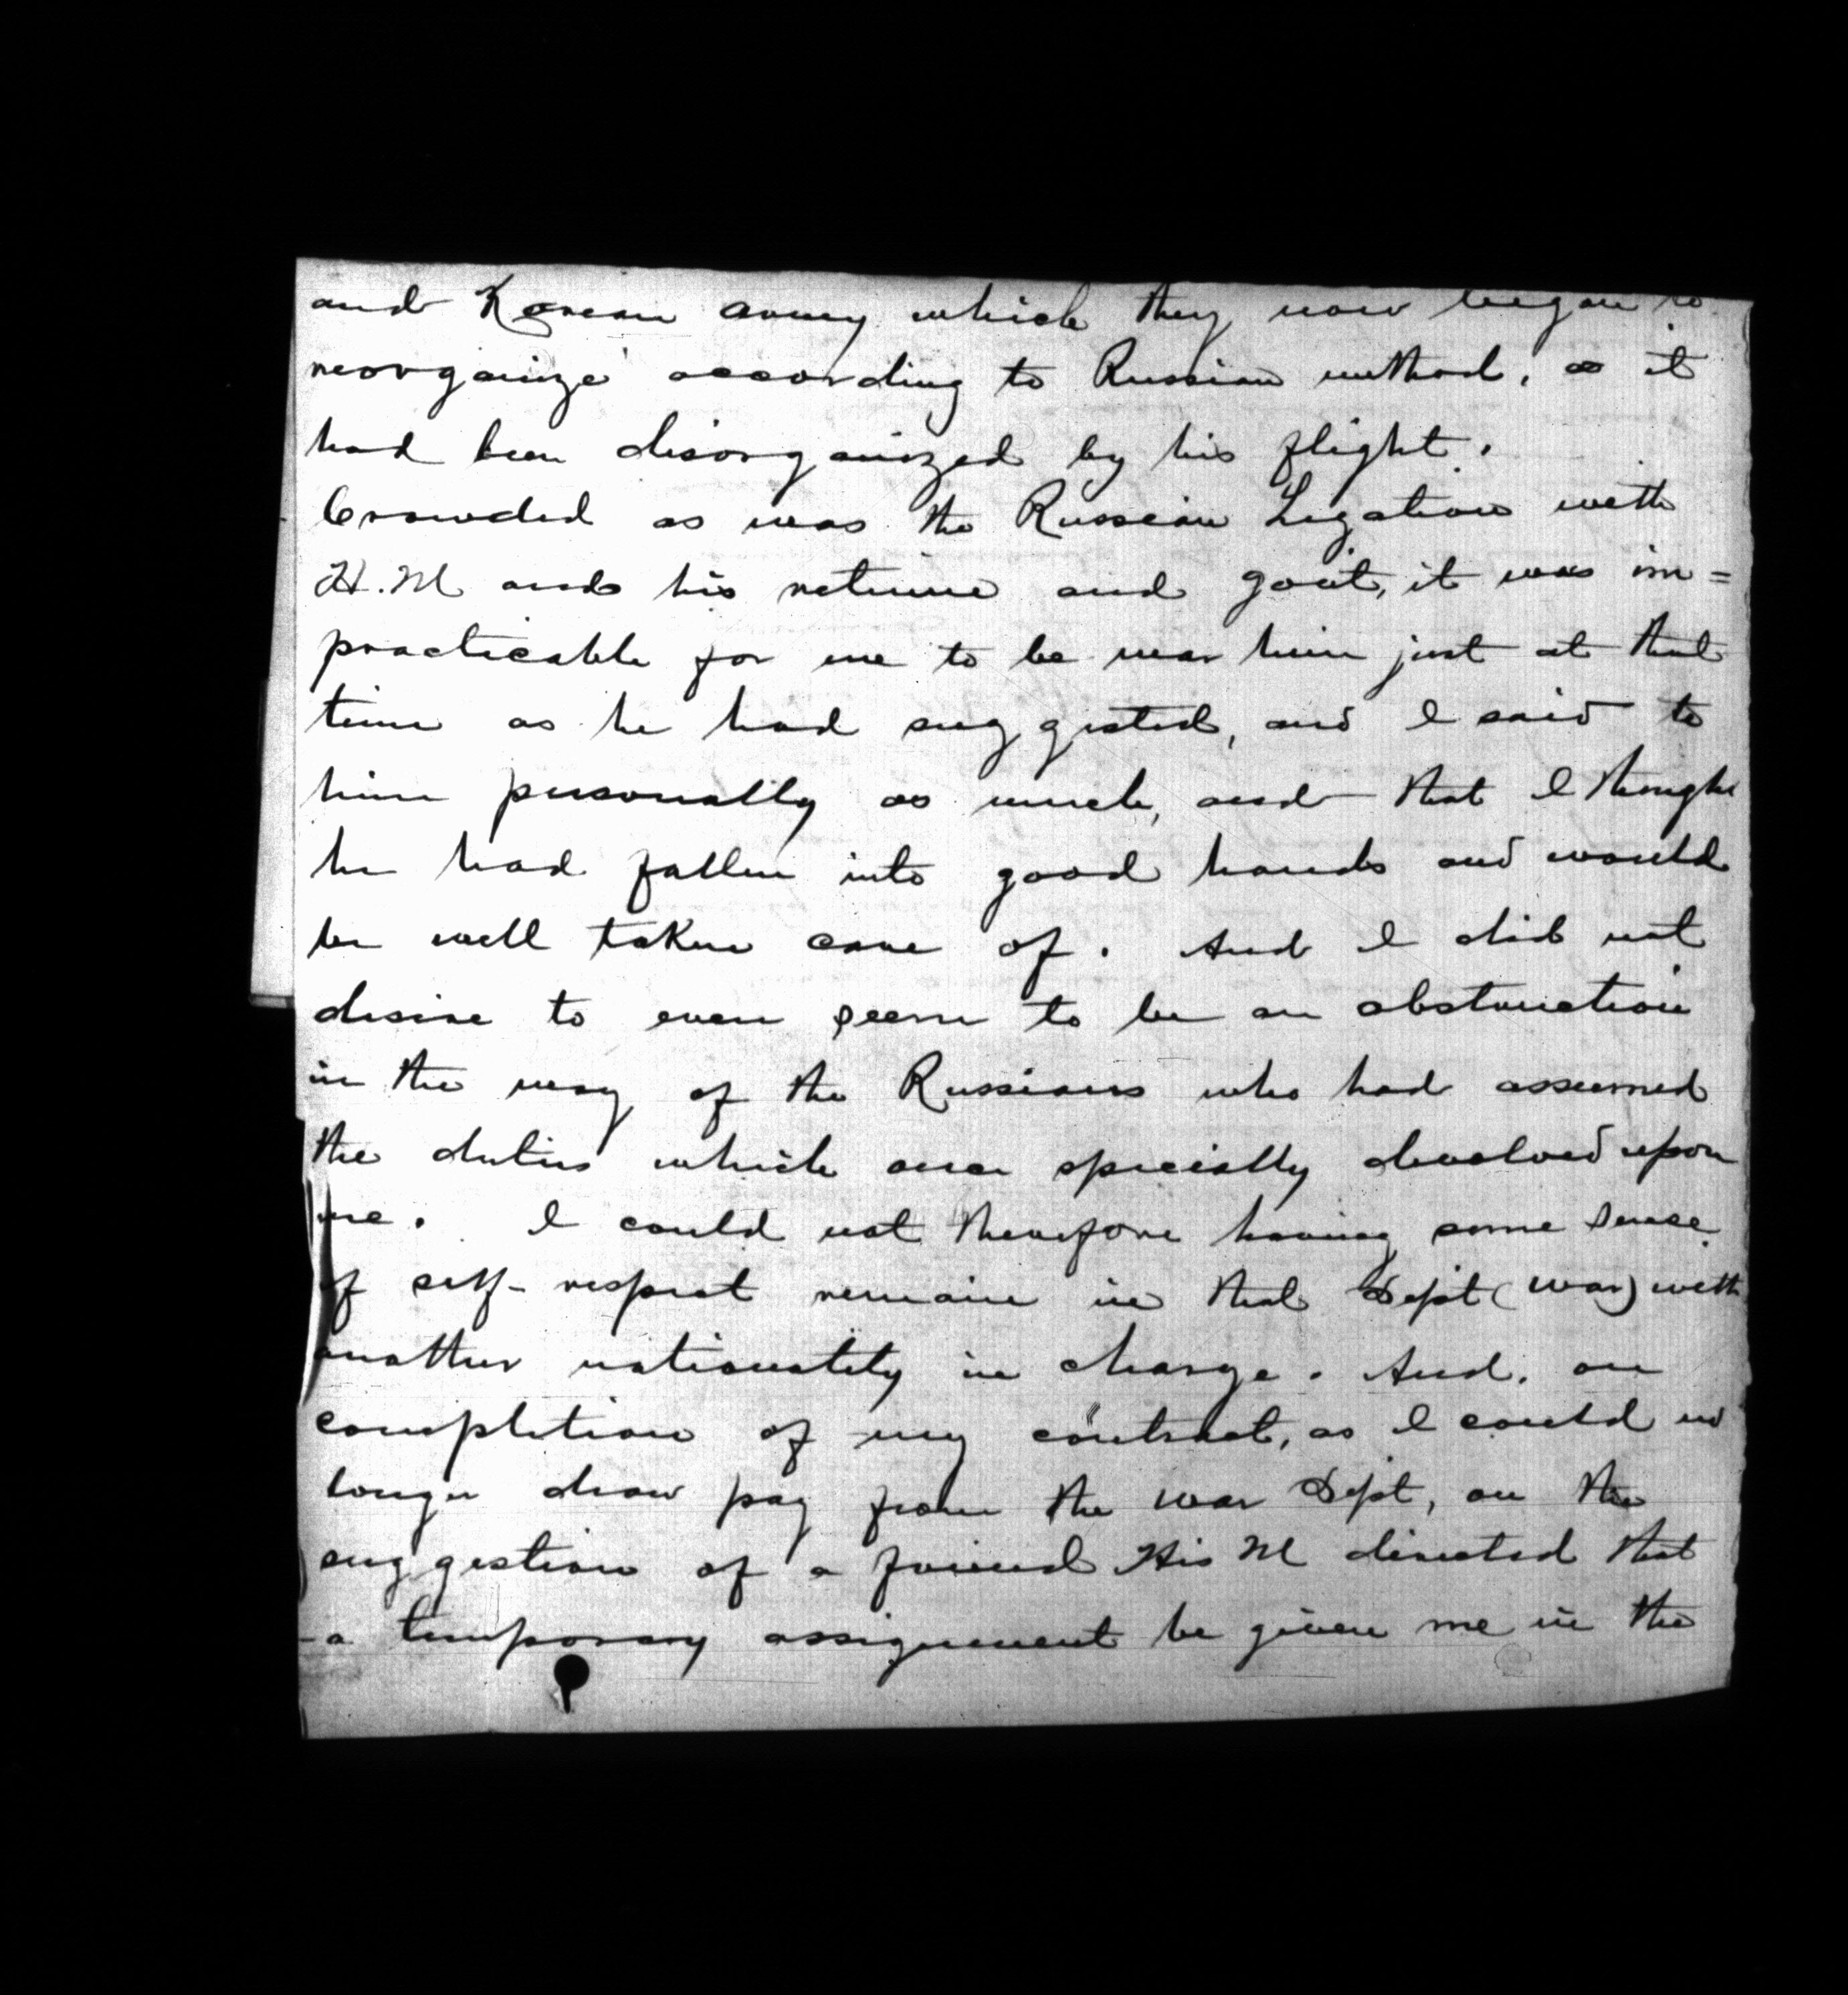 and Korean army which they now began to
reorganize according to Russian method, as it
had been disorganized by his flight.
Crowded as was the Russian Legation with
H.M and his retinue and govt, it was im=
practicable for me to be near him just at that
time as he had suggested, and I said to
him personally as much, and that I thought
he had fallen into good hands and would
be well taken care of. And I did not
desire to even seem to be an obstruction
in the way of the Russians who had assumed
the duties which once specially devolved upon
me. I could not therefore having some sense
of self-respect remain in that Dept (war) with
another nationality in charge. And, on
completion of my contract, as I could no
longer draw pay from the war Dept, on the
suggestion of a friend His M directed that
a temporary assignment be given me in the